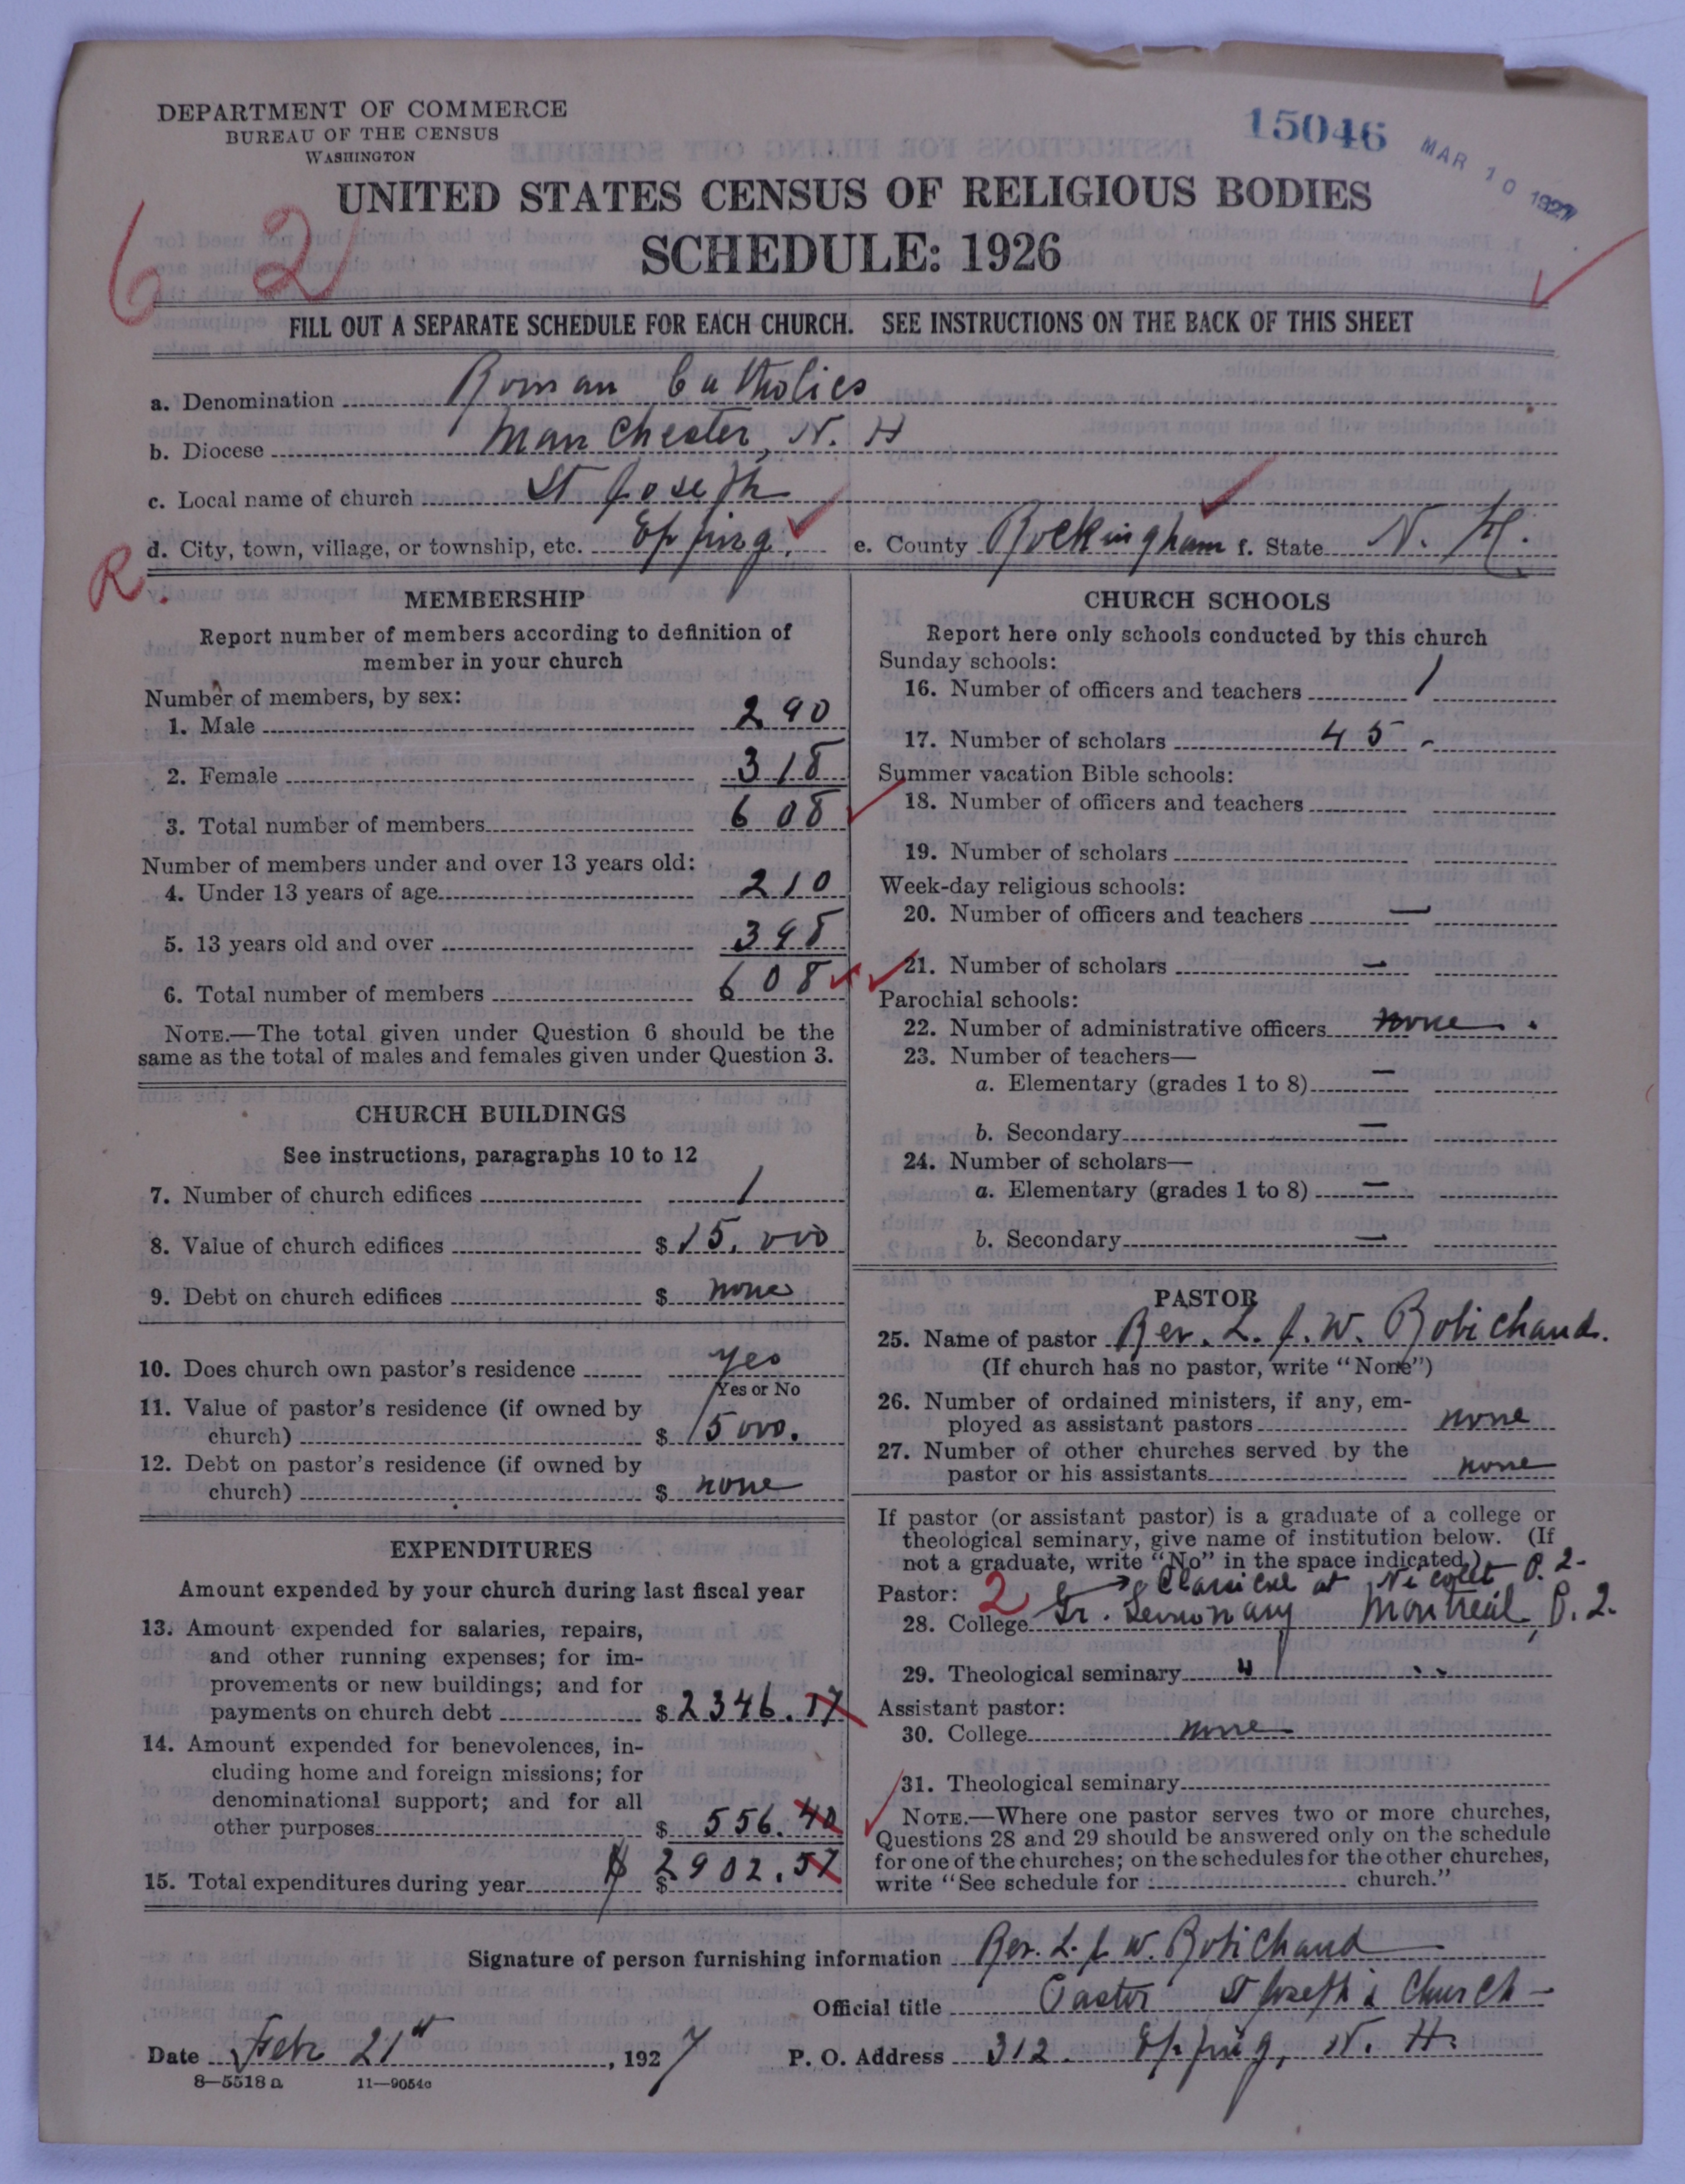 DEPARTMENT OF COMMERCE
BUREAU OF THE CENSUS
WASHINGTON
15046
MAR 10 1927
UNITED STATES CENSUS OF RELIGIOUS BODIES
SCHEDULE: 1926
6 2
FILL OUT A SEPARATE SCHEDULE FOR EACH CHURCH. SEE INSTRUCTIONS ON THE BACK OF THIS SHEET
a. Denomination Roman Catholics
b. Diocese Manchester, N. H
c. Local name of church St Joseph
d. City, town, village, or township, etc. Epping, e. County Rockingham f. State N. H.
R.
MEMBERSHIP
Report number of members according to definition of
member in your church
Number of members, by sex:
1. Male 290
2. Female 318
3. Total number of members 608
Number of members under and over 13 years old:
4. Under 13 years of age 210
5. 13 years old and over 398
6. Total number of members 608
NOTE.—The total given under Question 6 should be the
same as the total of males and females given under Question 3.
CHURCH BUILDINGS
See instructions, paragraphs 10 to 12
7. Number of church edifices 1
8. Value of church edifices $ 15,000
9. Debt on church edifices $ none
10. Does church own pastor's residence yes
Yes or No
11. Value of pastor's residence (if owned by
church) $ 5000.
12. Debt on pastor's residence (if owned by
church) $ none
EXPENDITURES
Amount expended by your church during last fiscal year
13. Amount expended for salaries, repairs,
and other running expenses; for im-
provements or new buildings; and for
payments on church debt $ 2346.17
14. Amount expended for benevolences, in-
cluding home and foreign missions; for
denominational support; and for all
other purposes $ 556.40
15. Total expenditures during year $ $ 2902.57
CHURCH SCHOOLS
Report here only schools conducted by this church
Sunday schools:
16. Number of officers and teachers 1
17. Number of scholars 45 -
Summer vacation Bible schools:
18. Number of officers and teachers
19. Number of scholars
Week-day religious schools:
20. Number of officers and teachers —
21. Number of scholars —
Parochial schools:
22. Number of administrative officers none.
23. Number of teachers—
a. Elementary (grades 1 to 8) —
b. Secondary —
24. Number of scholars—
a. Elementary (grades 1 to 8) —
b. Secondary —
PASTOR
25. Name of pastor Rev. L. J. W. Robichaud.
(If church has no pastor, write "None")
26. Number of ordained ministers, if any, em-
ployed as assistant pastors none
27. Number of other churches served by the
pastor or his assistants none
If pastor (or assistant pastor) is a graduate of a college or
theological seminary, give name of institution below. (If
not a graduate, write "No" in the space indicated.)
Pastor: 2 Classical at Nicolet P. 2-
28. College Gr. Seminary Montreal, P. 2.
29. Theological seminary " "
Assistant pastor:
30. College none
31. Theological seminary
NOTE.—Where one pastor serves two or more churches,
Questions 28 and 29 should be answered only on the schedule
for one of the churches; on the schedules for the other churches,
write "See schedule for church."
Signature of person furnishing information Rev. L. J. W. Robichaud
Official title Pastor St Joseph's Church -
Date Feb 21st, 1927 P. O. Address 312. Epping, N. H.
8—5518 a 11—9054c